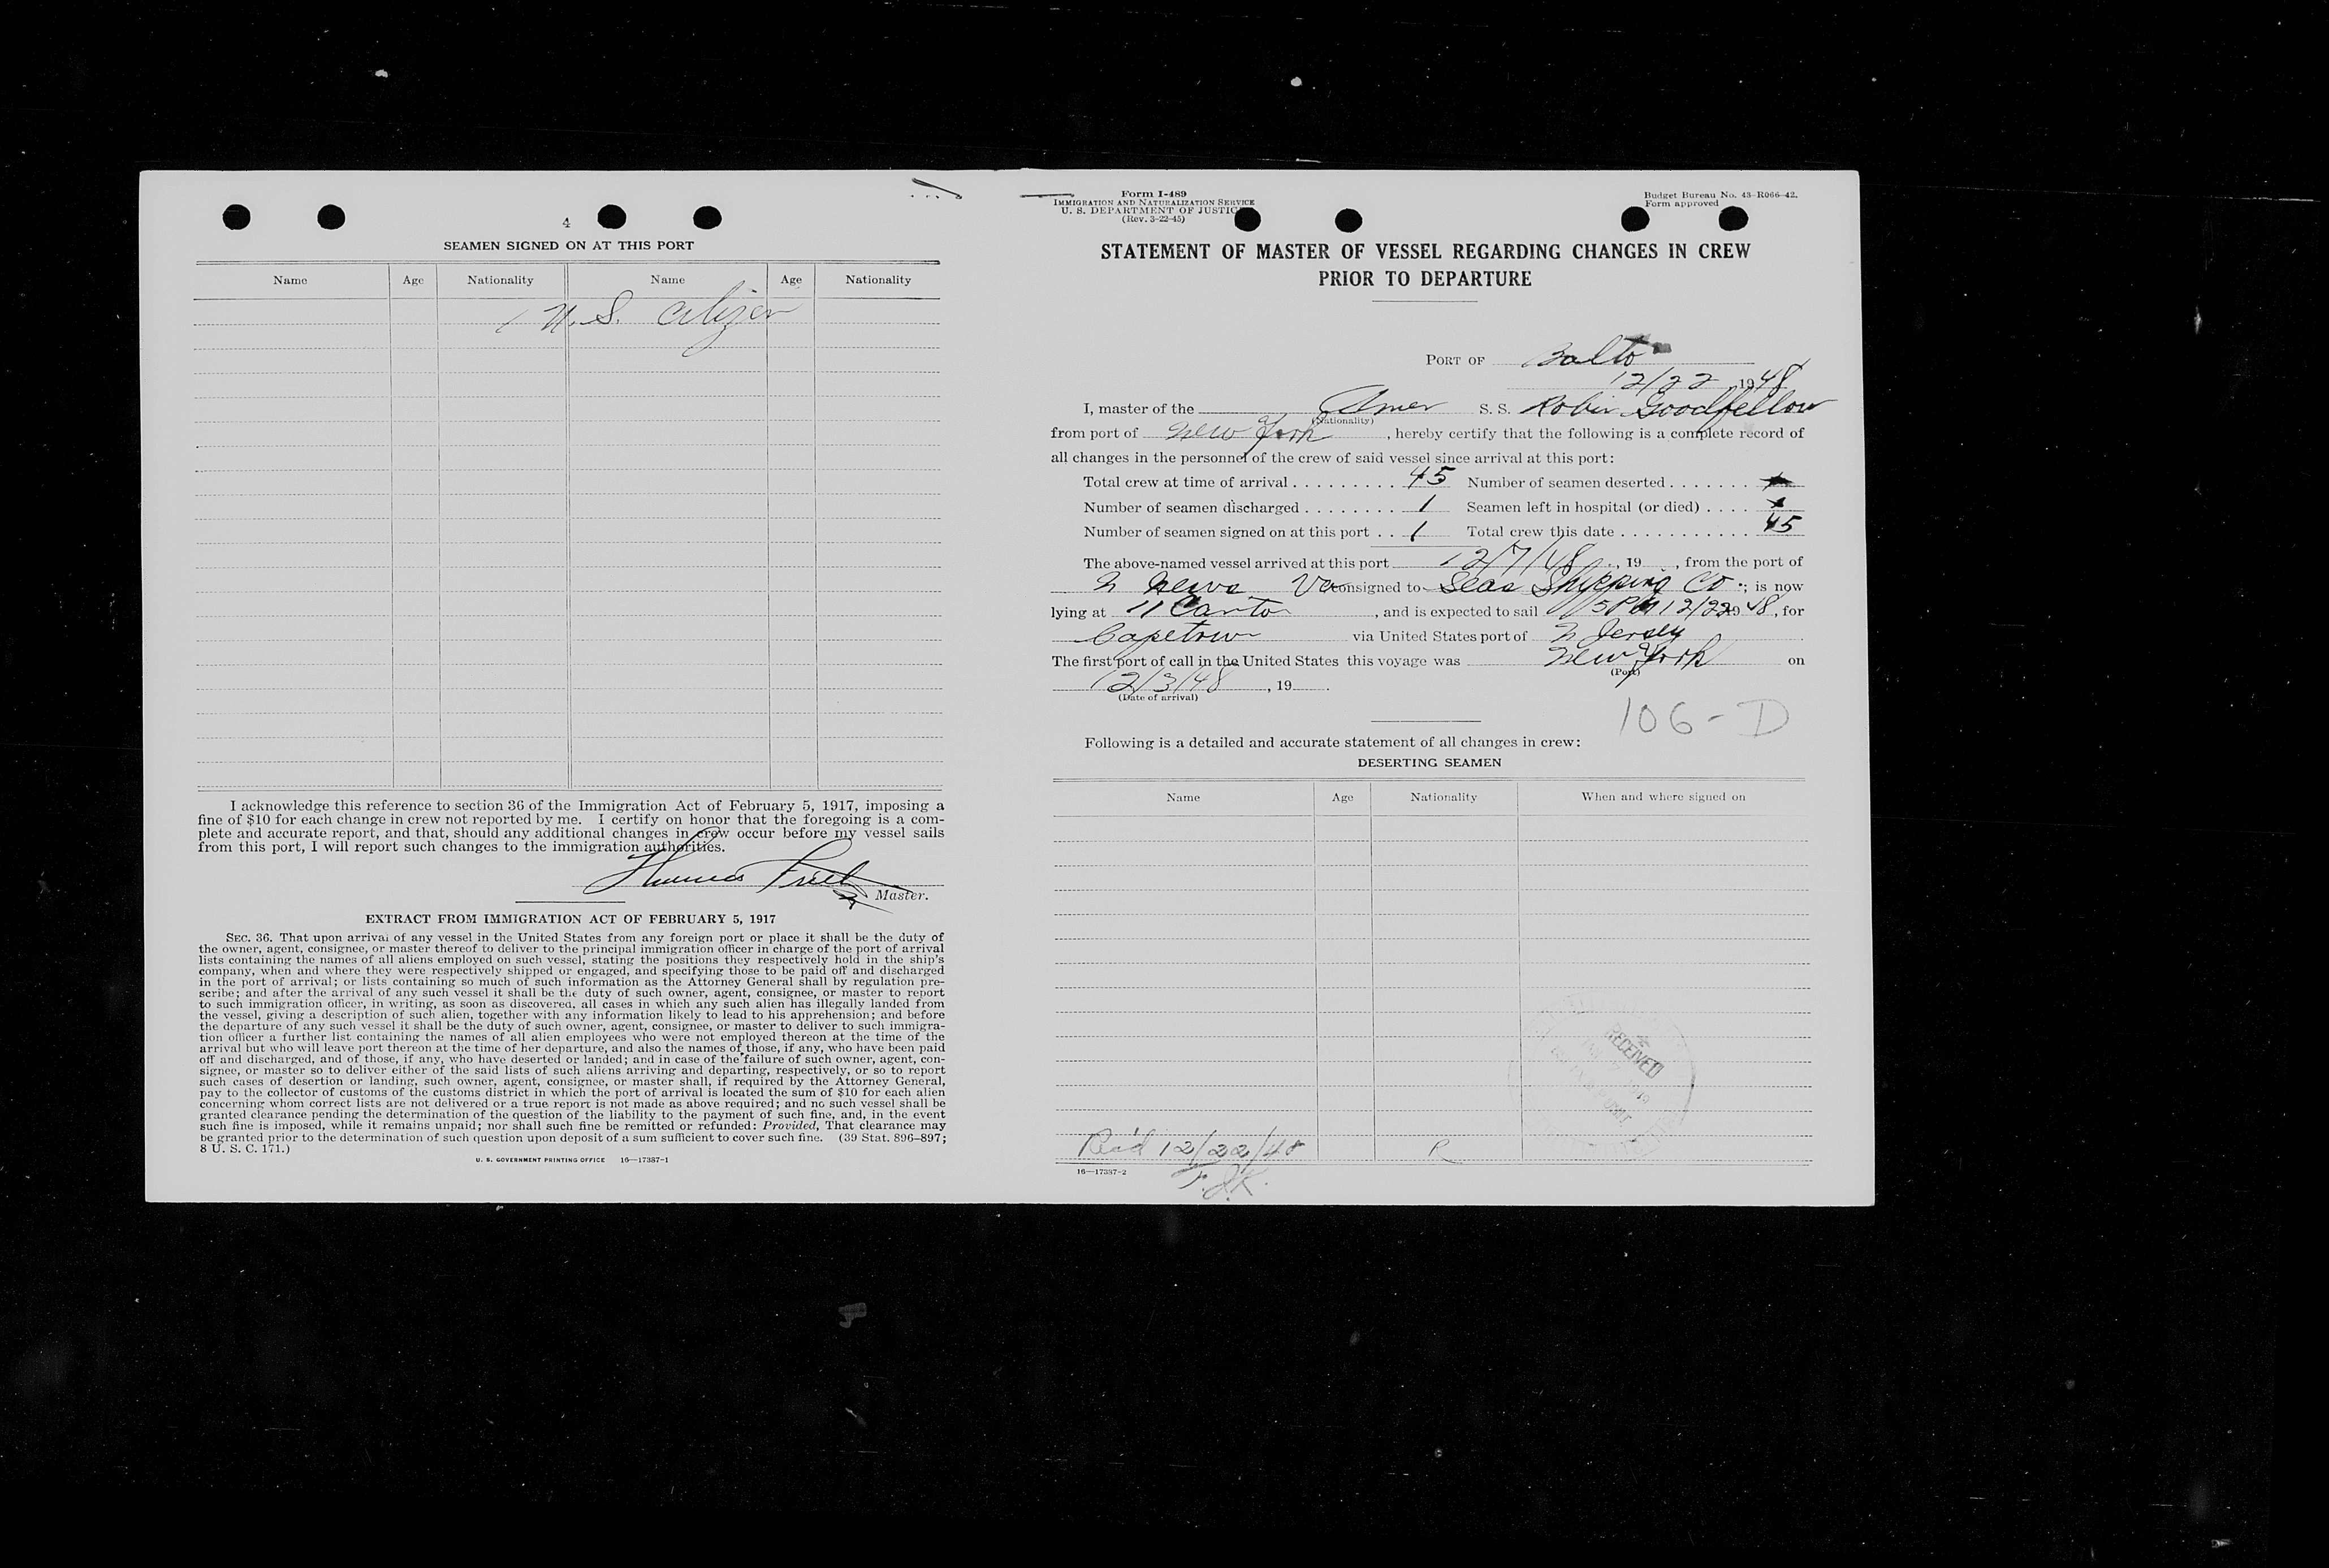 4
SEAMEN SIGNED ON AT THIS PORT
Name Age Nationality Name Age Nationality
1 U.S. Citizen
I acknowledge this reference to section 36 of the Immigration Act of February 5, 1917, imposing a
fine of $10 for each change in crew not reported by me. I certify on honor that the foregoing is a com-
plete and accurate report, and that, should any additional changes in crew occur before my vessel sails
from this port, I will report such changes to the immigration authorities.
Thomas
Master.
EXTRACT FROM IMMIGRATION ACT OF FEBRUARY 5, 1917
SEC. 36. That upon arrival of any vessel in the United States from any foreign port or place it shall be the duty of
the owner, agent, consignee, or master thereof to deliver to the principal immigration officer in charge of the port of arrival
lists containing the names of all aliens employed on such vessel, stating the positions they respectively hold in the ship's
company, when and where they were respectively shipped or engaged, and specifying those to be paid off and discharged
in the port of arrival; or lists containing so much of such information as the Attorney General shall by regulation pre-
scribe; and after the arrival of any such vessel it shall be the duty of such owner, agent, consignee, or master to report
to such immigration officer, in writing, as soon as discovered, all cases in which any such alien has illegally landed from
the vessel, giving a description of such alien, together with any information likely to lead to his apprehension; and before
the departure of any such vessel it shall be the duty of such owner, agent, consignee, or master to deliver to such immigra-
tion officer a further list containing the names of all alien employees who were not employed thereon at the time of the
arrival but who will leave port thereon at the time of her departure, and also the names of those, if any, who have been paid
off and discharged, and of those, if any, who have deserted or landed; and in case of the failure of such owner, agent, con-
signee, or master so to deliver either of the said lists of such aliens arriving and departing, respectively, or so to report
such cases of desertion or landing, such owner, agent, consignee, or master shall, if required by the Attorney General,
pay to the collector of customs of the customs district in which the port of arrival is located the sum of $10 for each alien
concerning whom correct lists are not delivered or a true report is not made as above required; and no such vessel shall be
granted clearance pending the determination of the question of the liability to the payment of such fine, and, in the event
such fine is imposed, while it remains unpaid; nor shall such fine be remitted or refunded: Provided, That clearance may
be granted prior to the determination of such question upon deposit of a sum sufficient to cover such fine. (39 Stat. 896–897;
8 U. S. C. 171.)
U. S. GOVERNMENT PRINTING OFFICE 16—17387-1
Form I-489
IMMIGRATION AND NATURALIZATION SERVICE
U. S. DEPARTMENT OF JUSTICE
(Rev. 3-22-45)
Budget Bureau No. 43-R066-42.
Form approved
STATEMENT OF MASTER OF VESSEL REGARDING CHANGES IN CREW
PRIOR TO DEPARTURE
PORT OF Balto
12/22, 1948
I, master of the Amer S. S. Robin Goodfellow
(Nationality)
from port of New York, hereby certify that the following is a complete record of
all changes in the personnel of the crew of said vessel since arrival at this port:
Total crew at time of arrival . . . . . . . . . 45 Number of seamen deserted . . . . . . .
Number of seamen discharged . . . . . . . . 1 Seamen left in hospital (or died) . . . .
Number of seamen signed on at this port . . 1 Total crew this date . . . . . . . . . . . 45
The above-named vessel arrived at this port 12/7/48, 19 , from the port of
N News Va consigned to Seas Shipping Co.; is now
lying at 11 Canton, and is expected to sail 5 PM 12/22 1948, for
Capetown via United States port of N Jersey
The first port of call in the United States this voyage was New York on
(Port)
12/3/48, 19 .
(Date of arrival)
106-D
Following is a detailed and accurate statement of all changes in crew:
DESERTING SEAMEN
Name Age Nationality When and where signed on
RECEIVED
Rec'd 12/22/48 R
16—17387-2
F.J.K.